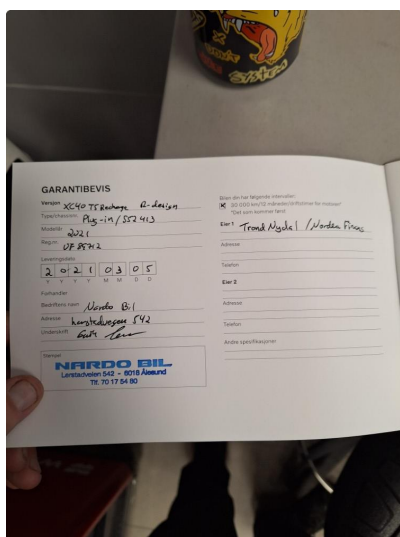 SYSTEM
GARANTIBEVIS
Versjon XC40 T5 Recharge R-design
Type/chassisnr. Plug-in / 552413
Modellår 2021
Reg.nr.
Leveringsdato
2 0 2 1 0 3 0 5
Y Y Y Y M M D D
Forhandler
Bedriftens navn Nardo Bil
Adresse 542
Underskrift
Stempel
NARDO BIL
Lerstadveien 542 - 6018 Ålesund
Tlf. 70 17 54 80
Bilen din har følgende intervaller:
20 000 km/12 måneder/driftstimer for motoren*
*Det som kommer først
Eier 1 Trond Nydal / Nordea Finans
Adresse
Telefon
Eier 2
Adresse
Telefon
Andre spesifikasjoner